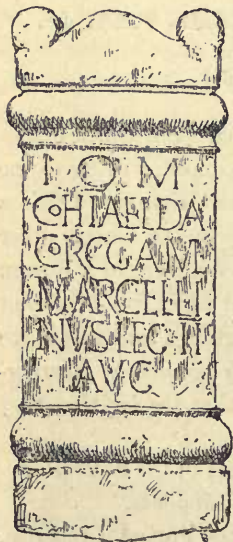 I O M
COHIAELDA
CORCGAIVL
MARCELLI
NVS LEG II
AVC